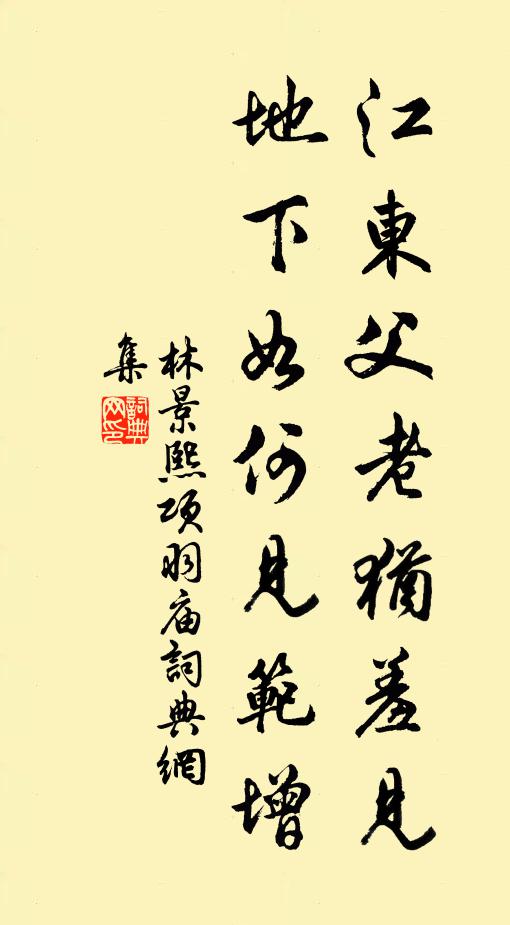 江東父老猶羞見
地下如何見範增
林景熙項羽庙詞典網
集
詞典
网印